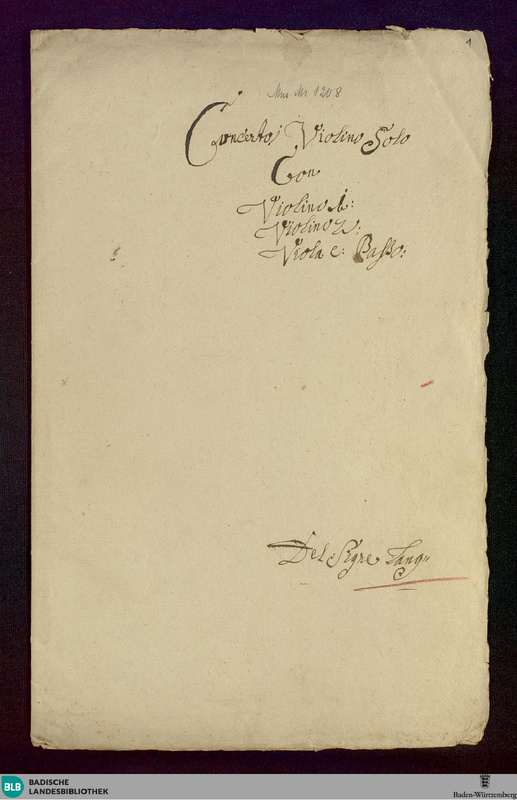 1
Mus. Hs. 1208
Concerto Violino Solo
Con
Violino 1:
Violino 2:
Viola e: Basso:
Del Sigre Lang
BLB BADISCHE
LANDESBIBLIOTHEK
Baden-Württemberg